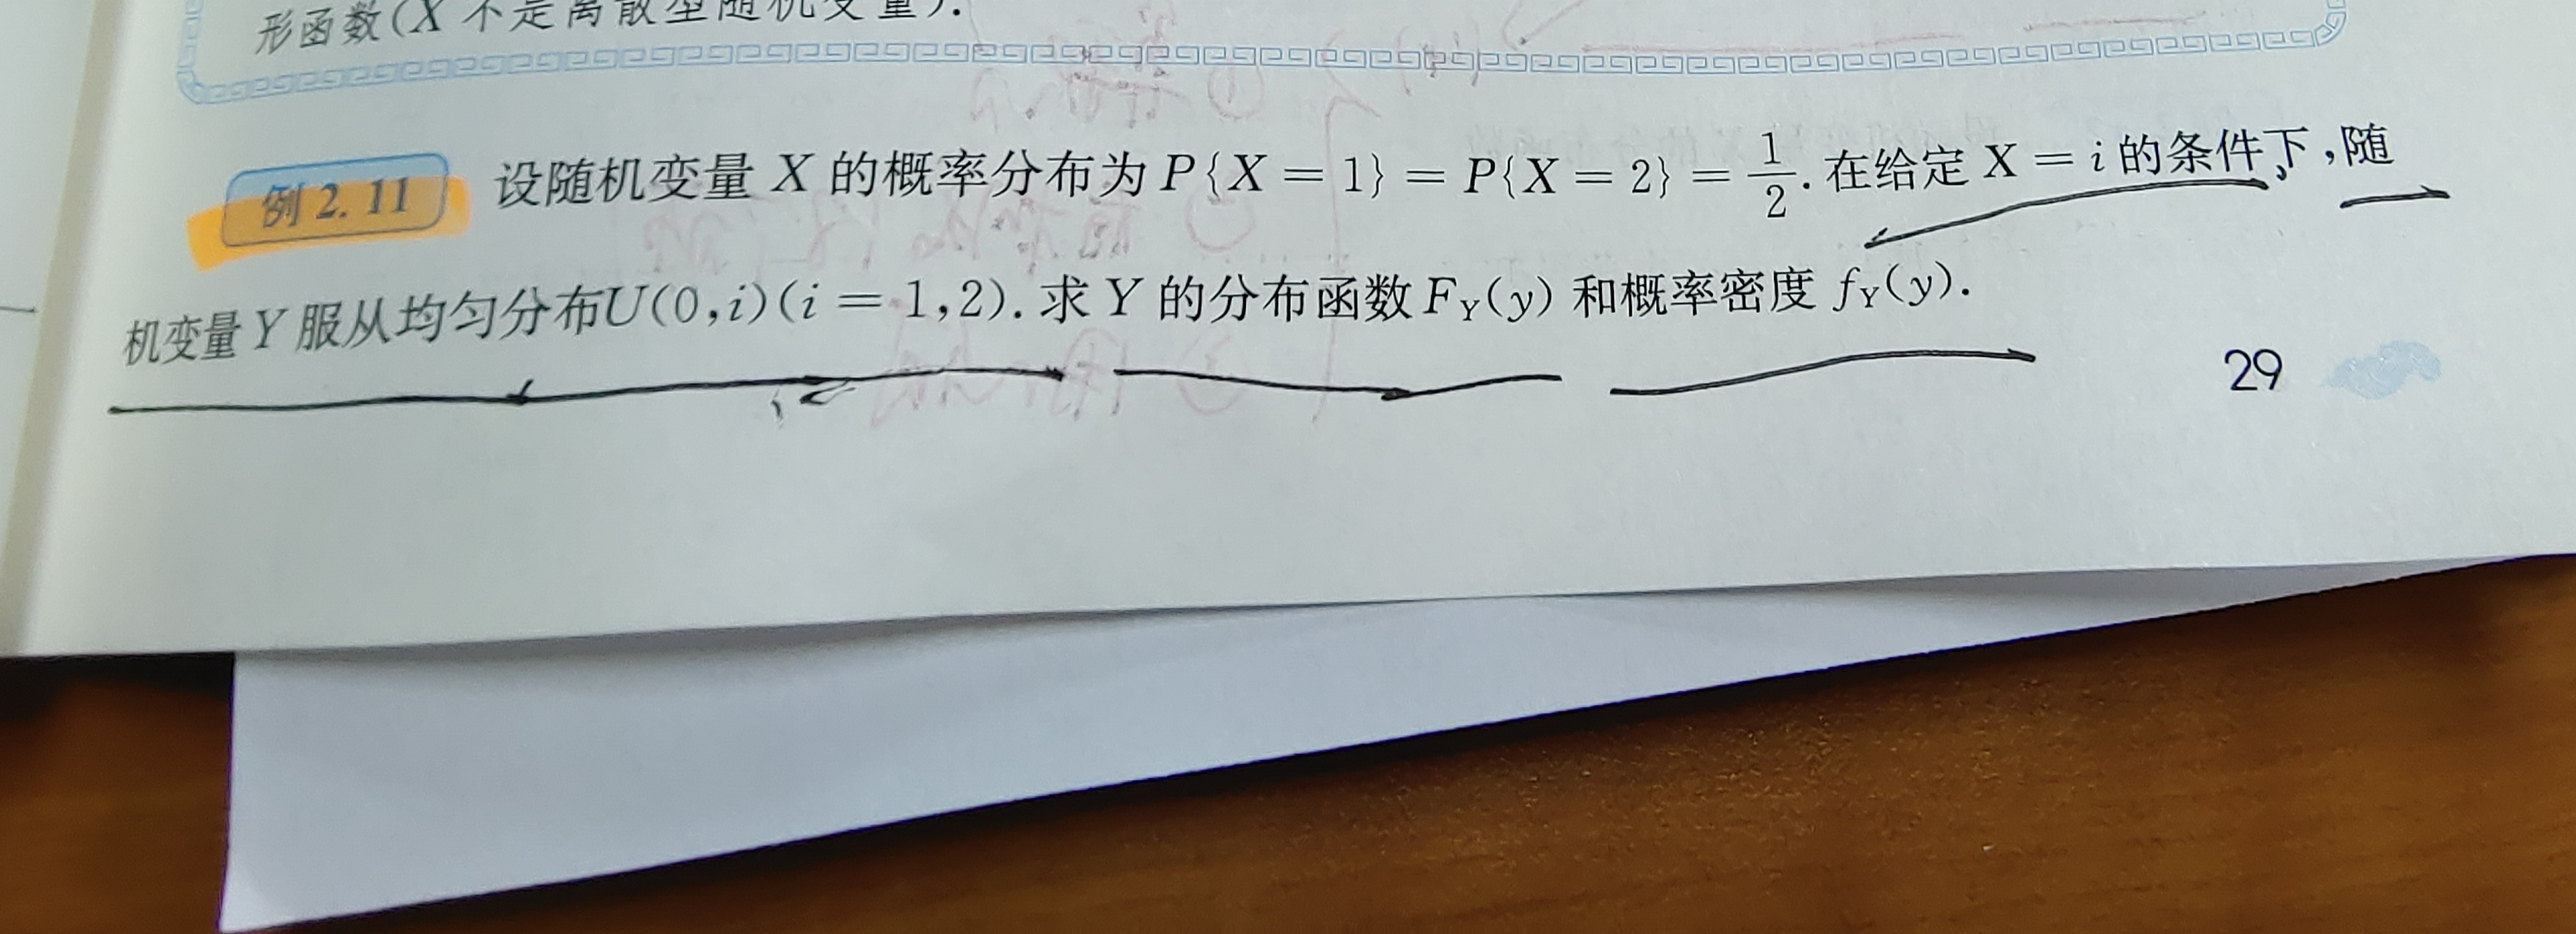 形函数(X 不是离散型随机变量).
例 2.11 设随机变量 X 的概率分布为 P{X = 1} = P{X = 2} = 1/2. 在给定 X = i 的条件下,随
机变量 Y 服从均匀分布U(0,i)(i = 1,2). 求 Y 的分布函数 F_Y(y) 和概率密度 f_Y(y).
29